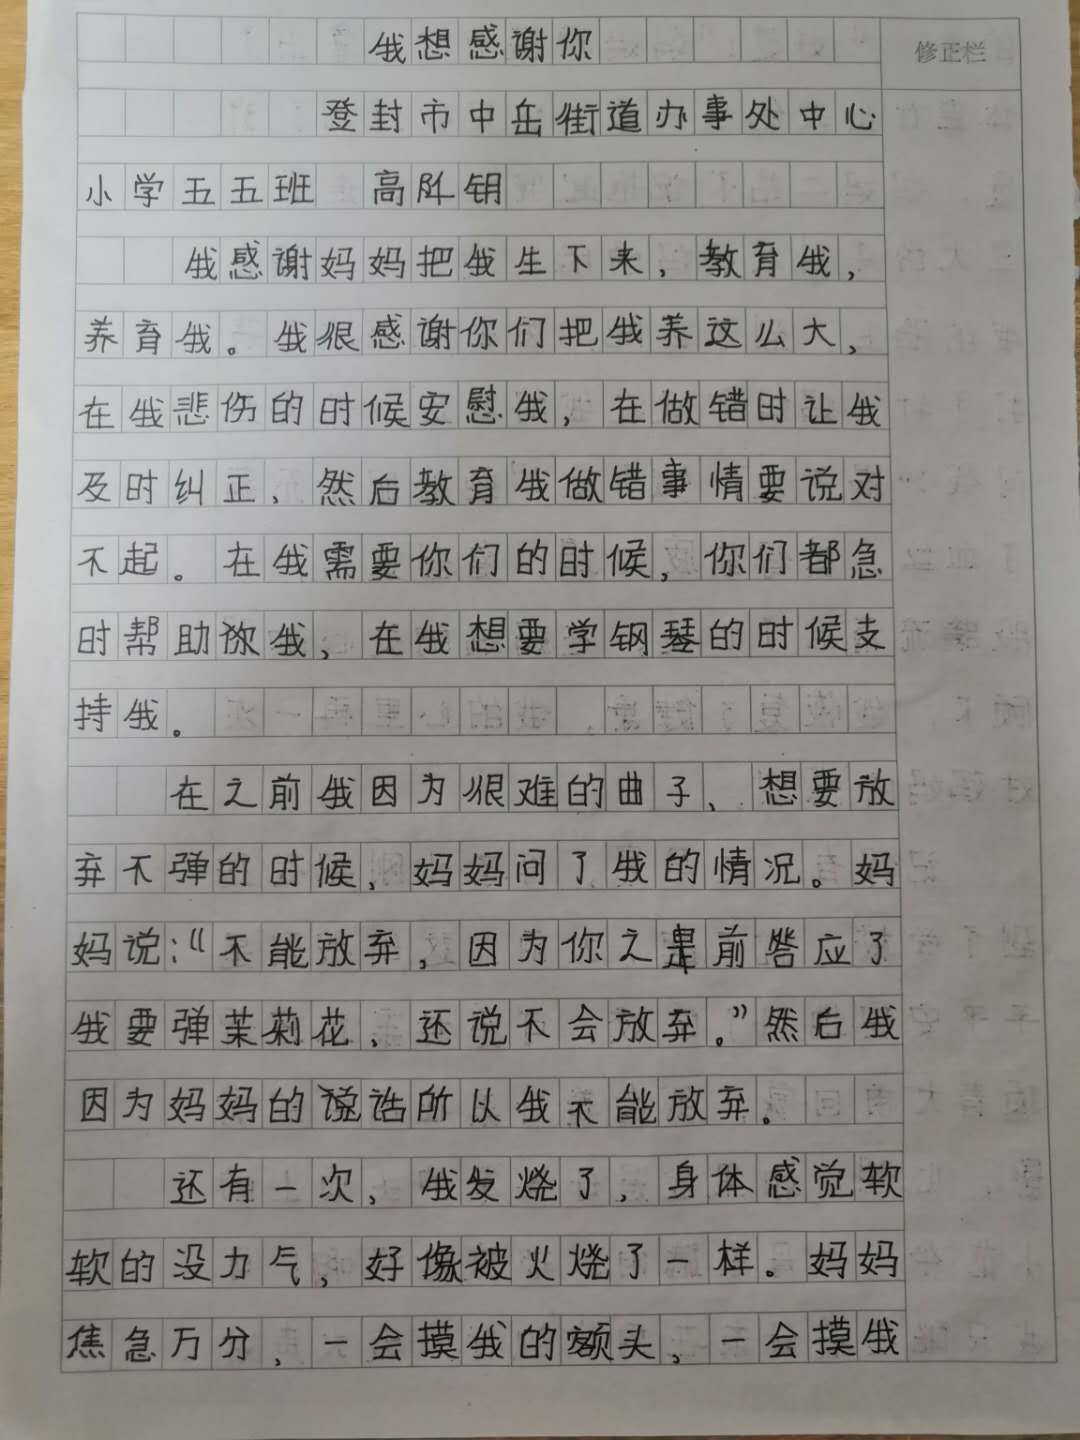 我想感谢你
修正栏
登封市中岳街道办事处中心
小学五五班 高阵钥
我感谢妈妈把我生下来,教育我,
养育我。我很感谢你们把我养这么大,
在我悲伤的时候安慰我,在做错时让我
及时纠正、然后教育我做错事情要说对
不起。在我需要你们的时候,你们都急
时帮助你我,在我想要学钢琴的时候支
持我。
在之前我因为很难的曲子、想要放
弃不弹的时候、妈妈问了我的情况。妈
妈说:“不能放弃,因为你之前答应了
我要弹茉莉花、还说不会放弃。”然后我
因为妈妈的说话所以我不能放弃。
还有一次、我发烧了,身体感觉软
软的没力气,好像被火烧了一样。妈妈
焦急万分,一会摸我的额头,一会摸我